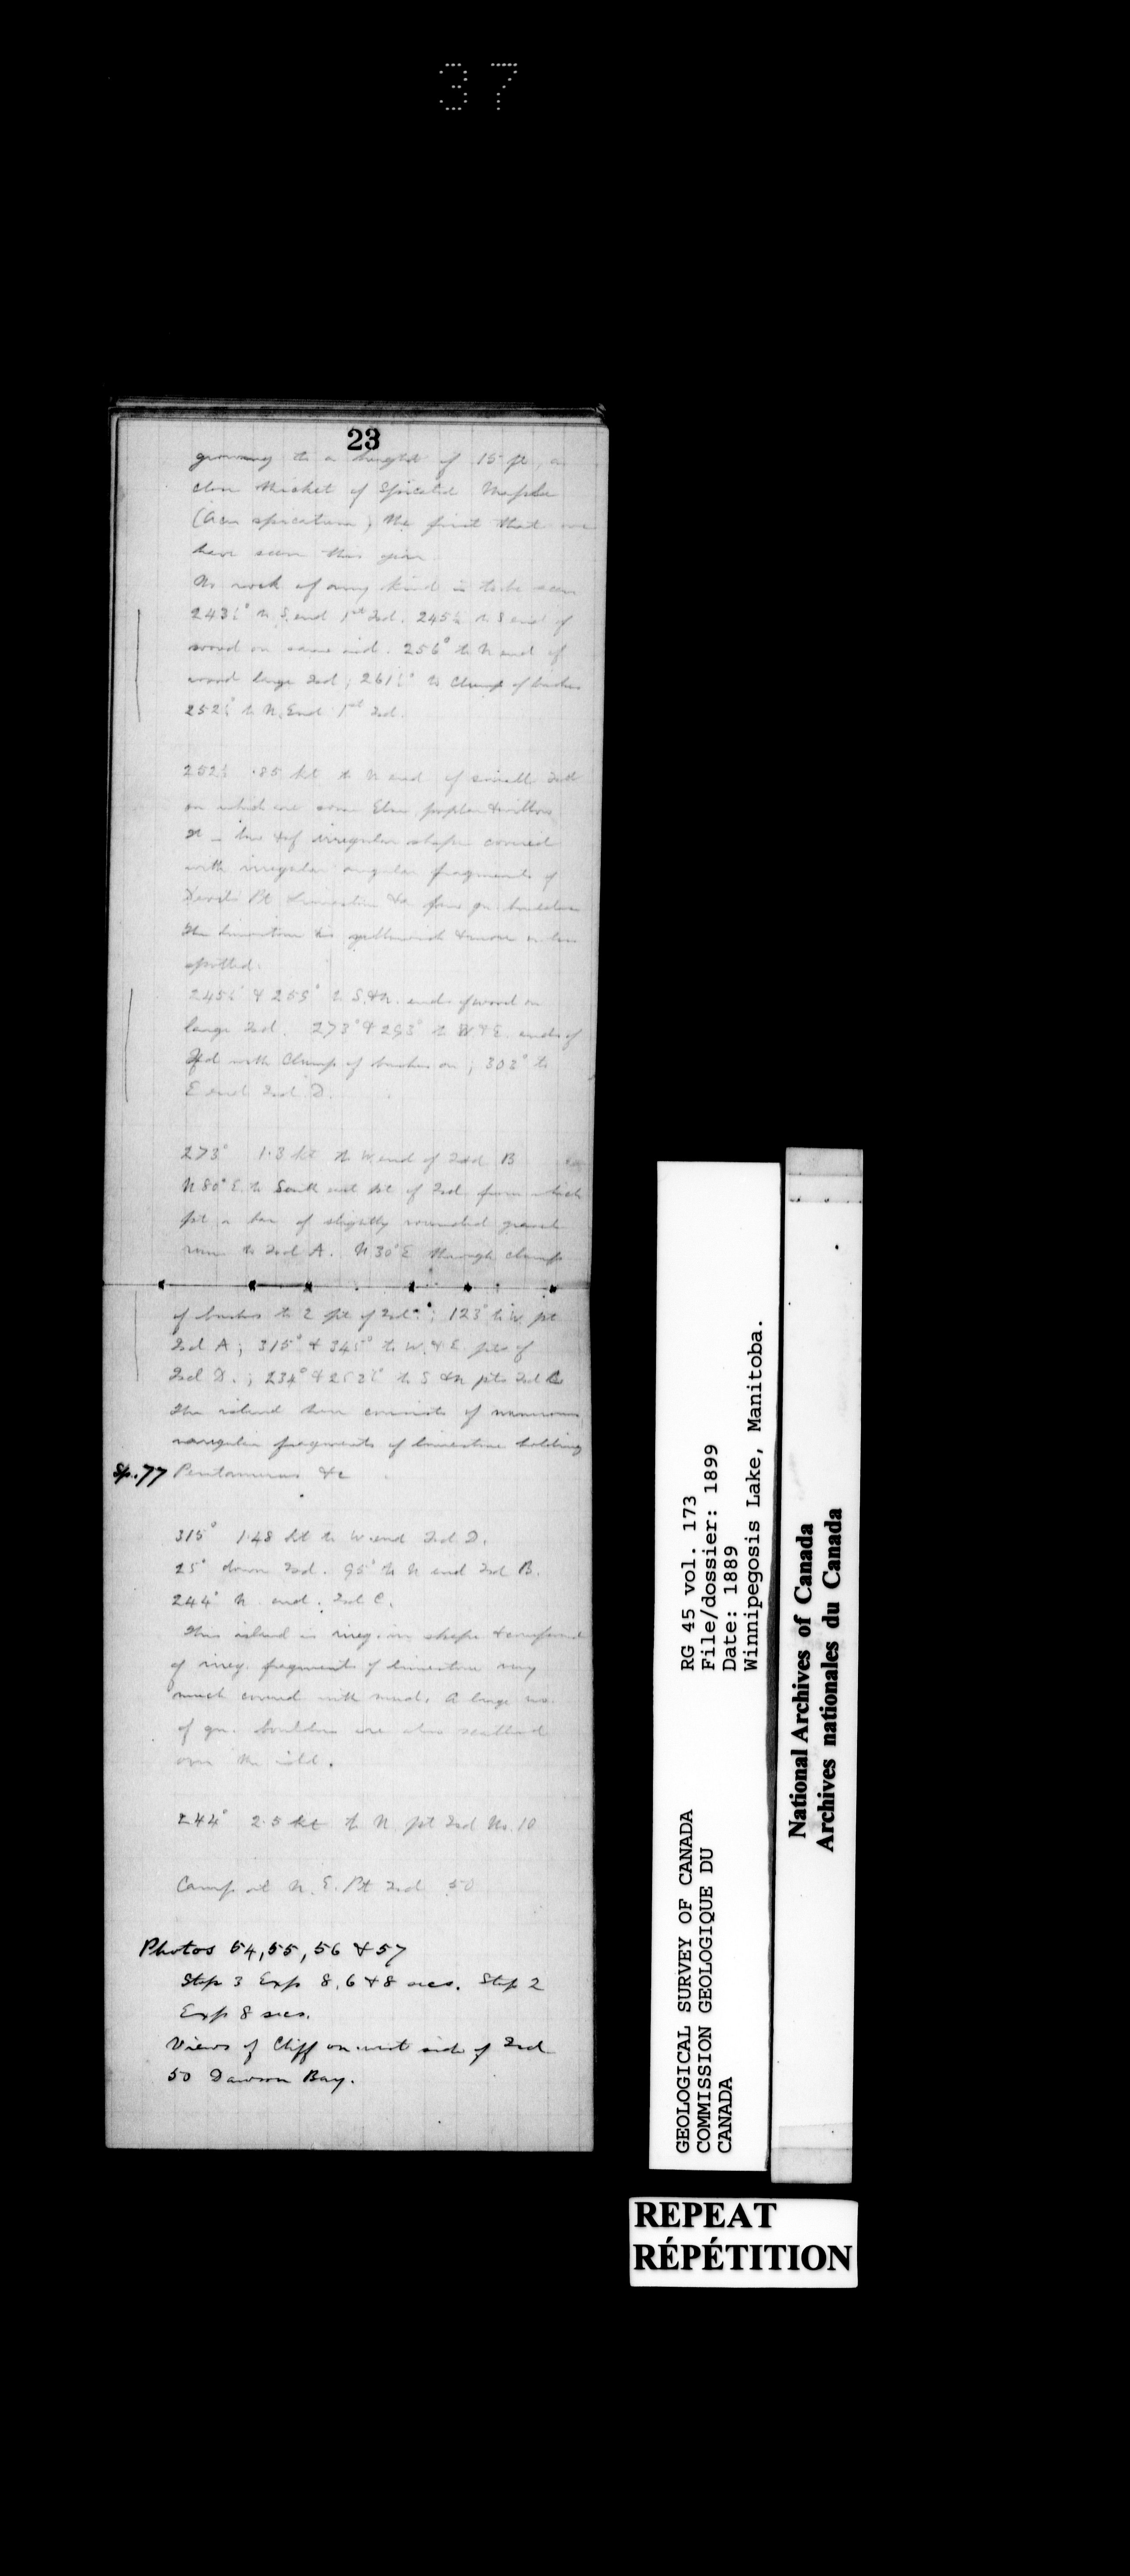 37
23
growing to a height of 15 ft, a
close thicket of Spicated Maple
(Acer spicatum) the first that we
have seen this year.
No rock of any kind is to be seen
243½° to S. end 1st Isd. 245½ to S end of
wood on same isd. 256° to N end of
wood large Isd; 261½° to Clump of bushes
252½ to N. End 1st Isd.
252½ .85 kt to N end of small Isd
on which are some Elm poplar & willow
It is low & of irregular shape covered
with irregular angular fragments of
Pt Limestone & a few gn. boulders
The limestone is yellowish & more or less
spotted.
245½ & 255° to S. & N. ends of wood on
large Isd. 273° & 293° to W & E. ends of
Isd with Clump of bushes on; 303° to
E end Isd D.
273° 1.3 kt to W end of Isd B
N 80° E. to South east pt of Isd from which
pt a bar of slightly rounded gravel
runs to Isd A. N 30° E through clump
of bushes to pt of Isd; 123° to W. pt
Isd A; 315° & 345° to W. & E. pts of
Isd D.; 234° & to S & N pts Isd C
The island here consists of numerous
irregular fragments of limestone holding
Sp. 77 Pentamerus &c
315° 1.48 kt to W. end Isd D.
25° down Isd. 95° to N end Isd B.
244° N. end. Isd C.
This island is irreg. in shape & composed
of irreg. fragments of limestone very
much covered with mud. A large no.
of gn. boulders are also scattered
over the isld.
244° 2.5 kt to N pt Isd No. 10
Camp at N. E. Pt Isd 50
Photos 54, 55, 56 & 57
Stop 3 Exp 8, 6 & 8 secs. Stop 2
Exp 8 secs.
Views of Cliff on west side of Isd
50 Dawson Bay.
RG 45 vol. 173
File/dossier: 1899
Date: 1889
Winnipegosis Lake, Manitoba.
GEOLOGICAL SURVEY OF CANADA
COMMISSION GEOLOGIQUE DU
CANADA
National Archives of Canada
Archives nationales du Canada
REPEAT
RÉPÉTITION